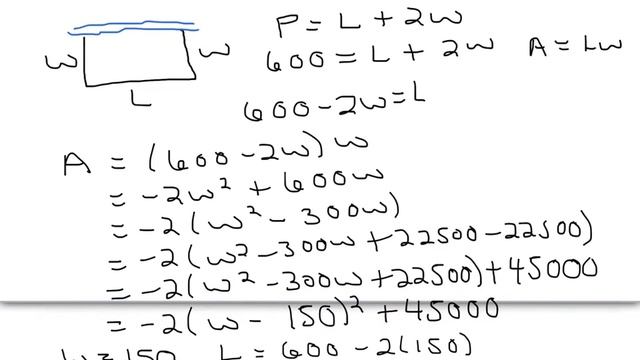 P = L + 2w
w w 600 = L + 2w A = Lw
L
600 - 2w = L
A = (600 - 2w) w
= -2w² + 600w
= -2(w² - 300w)
= -2(w² - 300w + 22500 - 22500)
= -2(w² - 300w + 22500) + 45000
= -2(w - 150)² + 45000
w = 150 L = 600 - 2(150)